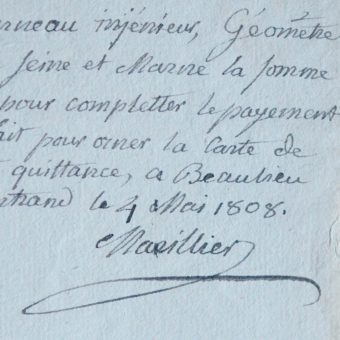 rneau injénieur, Géomètre
Seine et Marne la somme
pour completter le payement
ait pour orner la Carte de
quittance, a Beaulieu
ntrand le 4 Mai 1808.
Marillier